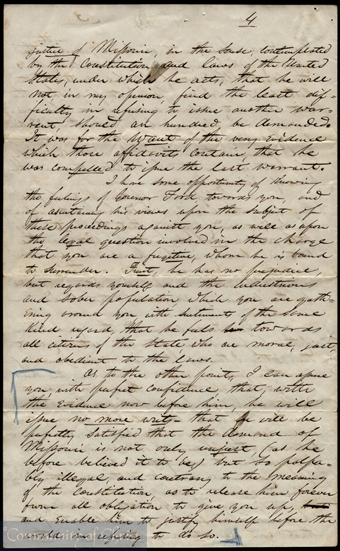 4
justice of Missouri, in the sense contemplated
by the Constitution and laws of the United
States, under which he acts, that he will
not in my opinion, find the least dif-
ficulty in refusing to issue another war-
rant, should an hundred be demanded.
It was for the want of the very evidence
which those affidavits contain, that he
was compelled to issue the last warrant.
I have some opportunity of knowing
the feelings of Governor Ford towards you, and
of ascertaining his views upon the subject of
these proceedings against you, as well as upon
the legal question involved in the charge
that you are a fugitive, whom he is bound
to surrender. First, he has no prejudice,
but regards yourself and the industrious
and sober population which you are gath-
ering around you with sentiments of the same
kind regard that he feels towards
all citizens of the State who are moral, just,
and obedient to the laws.
As to the other point, I can assure
you, with perfect confidence that, with
the evidence now before him, he will
issue no more writs— that he will be
perfectly satisfied that the demand of
Missouri is not only unjust (as he
before believed it to be) but so palpa-
bly illegal and contrary to the meaning
of the Constitution, as to release him forever
from all obligation to give you up,
and enable him to justify himself before the
world in refusing to do so.